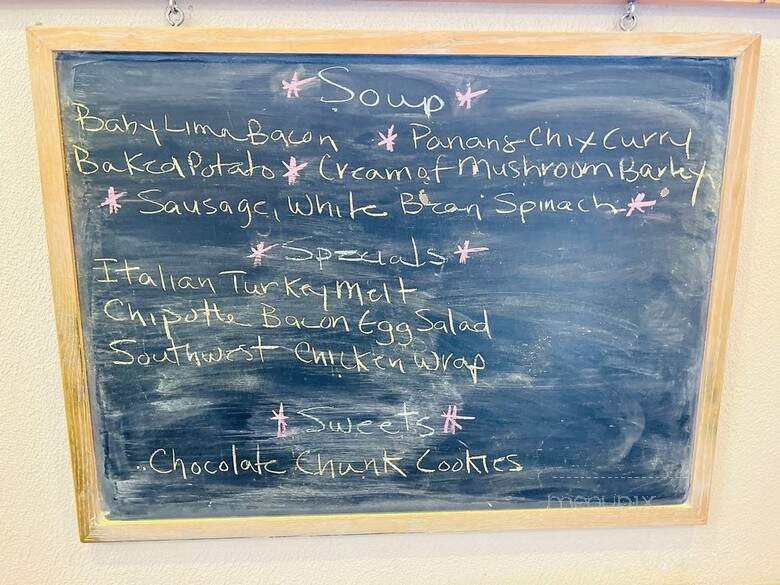 * Soup *
Baby Lima Bacon * Panang Chix Curry
Baked Potato * Cream of Mushroom Barley
* Sausage, White Bean Spinach *
* Specials *
Italian Turkey Melt
Chipotle Bacon Egg Salad
Southwest Chicken Wrap
* Sweets *
..Chocolate Chunk Cookies
menupix